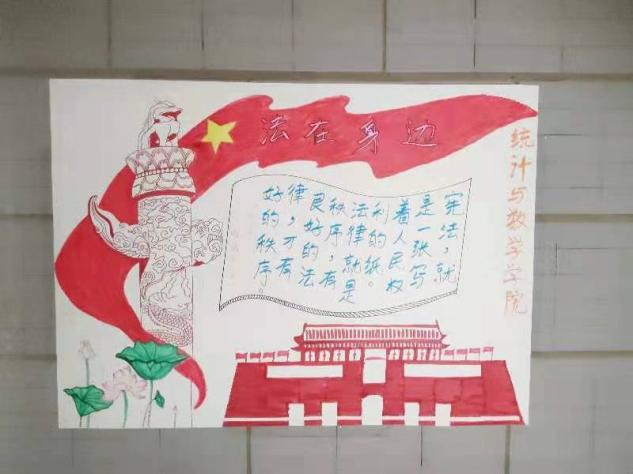 法在身边
统计与数学学院
宪法，就
是一张写
着人民权
利的纸。
法律就是
秩序，有
良好的法
律，才有
好的秩序。